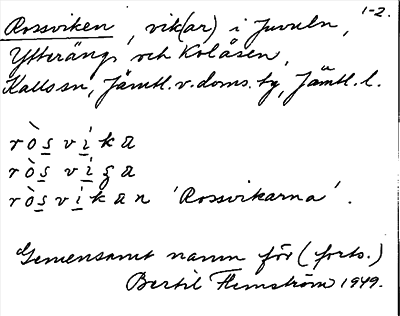 1-2.
Rossviken, vik(ar) i Juveln,
Ytteräng och Kolåsen,
Kalls sn, Jämtl. v. doms. tg, Jämtl. l.
ròs̲vi̲ka
ròs̲ vi̲ga
ròs̲vi̲kan 'Rossvikarna'.
Gemensamt namn för (forts.)
Bertil Flemström 1949.